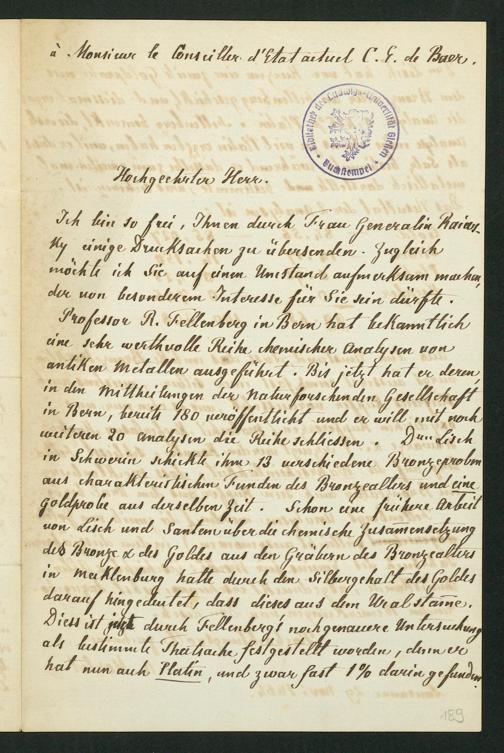 à Monsieur le Conseiller d'Etat actuel C. E. de Baer.
Bibliothek der Ludwigs-Universität Gießen
Buchstempel
Hochgeehrter Herr.
Ich bin so frei, Ihnen durch Frau Generalin Raiew-
ky einige Drucksachen zu übersenden. Zugleich
möchte ich Sie auf einen Umstand aufmerksam machen,
der von besonderem Interesse für Sie sein dürfte.
Professor R. Fellenberg in Bern hat bekanntlich
eine sehr werthvolle Reihe chemischer Analysen von
antiken Metallen ausgeführt. Bis jetzt hat er deren,
in den Mittheilungen der Naturforschenden Gesellschaft
in Bern, bereits 180 veröffentlicht und er will mit noch
weiteren 20 Analysen die Reihe schliessen. Lisch
in Schwerin schickte ihm 13 verschiedene Bronzeproben
aus charakteristischen Funden des Bronzealters und eine
Goldprobe aus derselben Zeit. Schon eine frühere Arbeit
von Lisch und Santen über die chemische Zusamensetzung
des Bronze & des Goldes aus den Gräbern des Bronzealters
in Mecklenburg hatte durch den Silbergehalt des Goldes
darauf hingedeutet, dass dieses aus dem Ural stame.
Diess ist jetzt durch Fellenberg's noch genauere Untersuchung
als bestimmte Thatsache festgestellt worden, denn er
hat nun auch Platin, und zwar fast 1% darin gefunden.
189